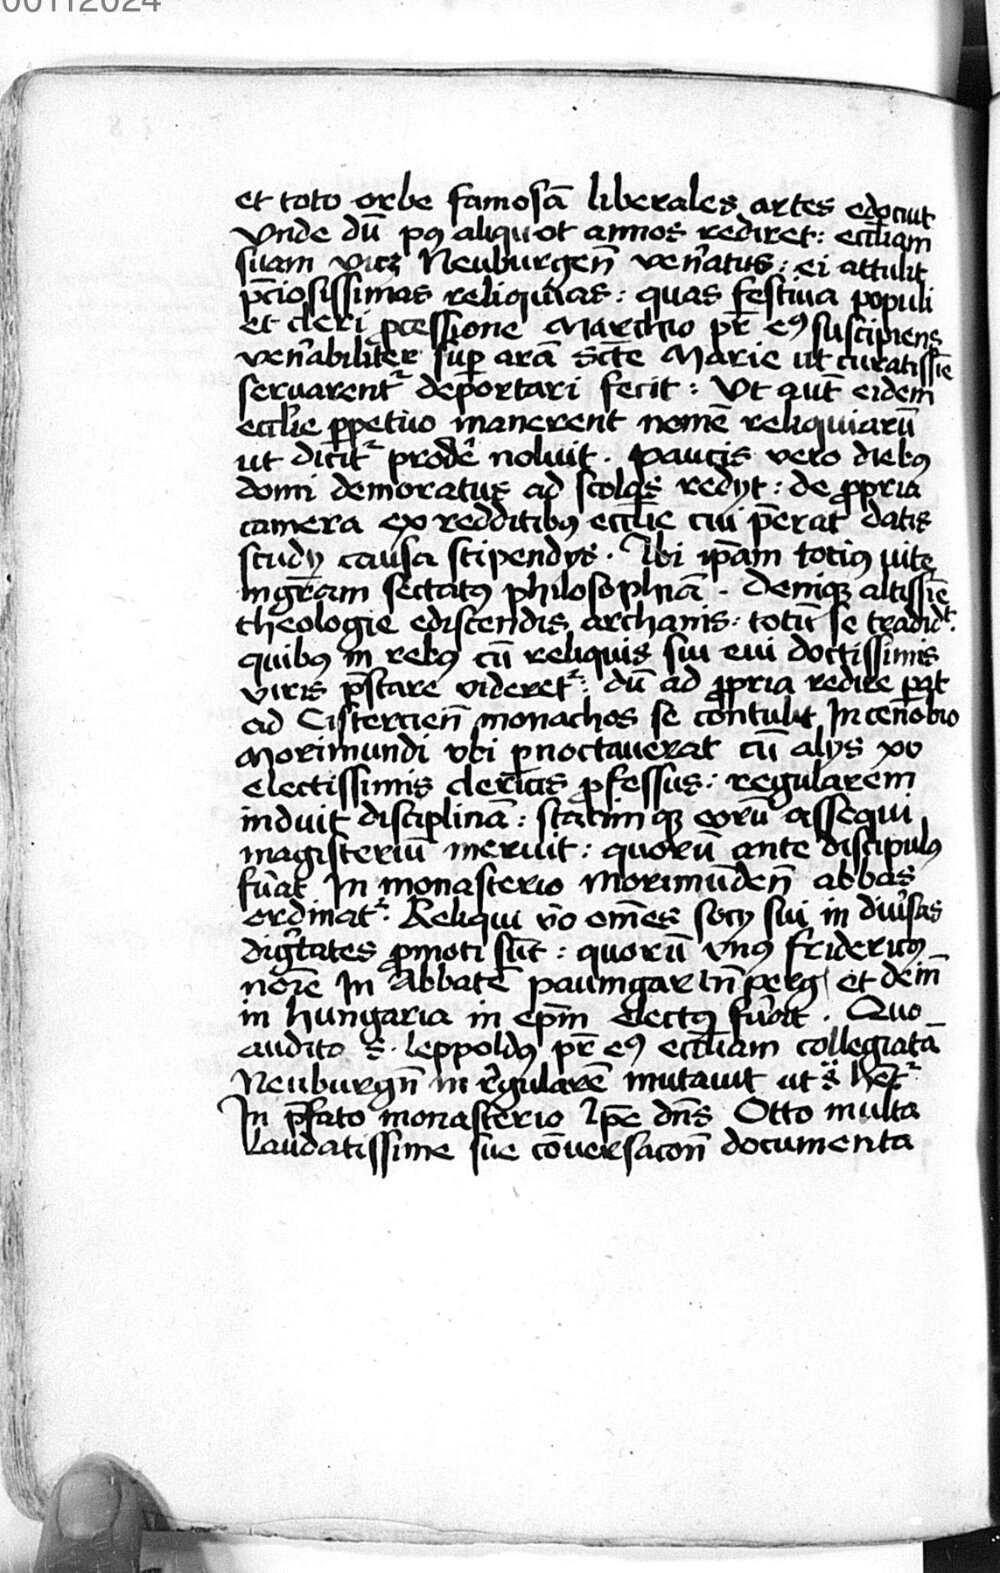 00112024
et toto orbe famosā liberales artes edocuit
Vnde dū pꝰ aliquot annos rediret: eccliam
suam vicꝫ Neuburgen̄ ven̄atus: ei attulit
p̄ciosissimas reliquias: quas festiua populi
et cleri ꝓcessione Marchio pr̄ eꝰ suscipiens
ven̄abiliter suꝑ arā sctē Marie ut curatissīe
seruarentᷣ deportari fecit: Vt aut̄ eidem
ecclīe ꝑpetuo manerent nomē reliquiarū
ut dicitᷣ prodē noluit. Paucis vero diebꝰ
domi demoratus ad scolas redyt: de ꝓpria
camera ex redditibꝰ ecclīe cui p̄erat datis
study causa stipendys. Ibi ip̄am totiꝰ uite
mgr̄am sectatꝰ philosophiā. Deniqꝫ altissīe
theologie ediscendis archanis: totū se tradidt.
quibꝰ in rebꝰ cū reliquis sui eui doctissimis
viris p̄stare videretᷣ: dū ad ꝓpria redire ꝑat
ad Cistercien̄ monachos se contulit In cenobio
Morimundi vbi ꝑnoctauerat cū alys xv
electissimis clericis ꝓfessus: regularem
induit disciplinā: statimqꝫ eorū assequi
magisteriū meruit: quorū ante discipulꝰ
fu̅at In monasterio Morimūden̄ abbas
ordinatᷣ. Reliqui v̄o om̄es socy sui in diu̅sas
dig̅tates ꝓmoti sūt: quorū vnꝰ fridericꝰ
noīe In Abbatē paumgartn̄perg et dein̄
in hungaria in ep̄m electꝰ fu̅at. Quo
audito s. leppoldꝰ pr̄ eꝰ eccliam collegiatā
Neuburgn̄ in r̄gularē mutauit ut s̄ hēt̄ᷣ
In p̄fato monasterio Ip̄e dn̄s Otto multa
Laudatissime sue cōuersacon̄ documenta